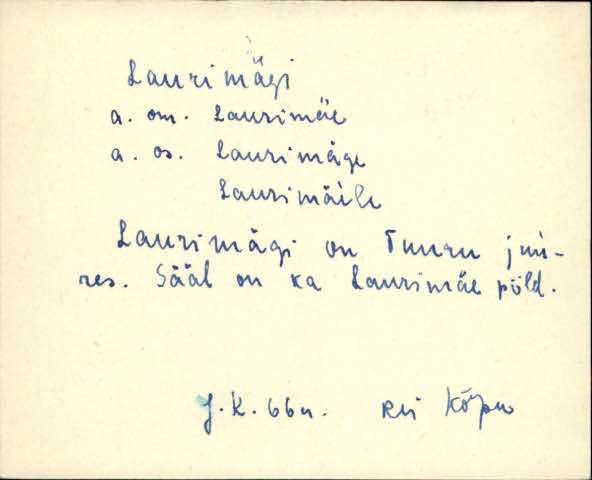 Laurimägi
a. om. Laurimäe
a. os. Laurimäge
Laurimäile
Laurimägi on Tuuru juu-
res. Sääl on ka Laurimäe põld.
J.K. 66a. Rei Kõpu